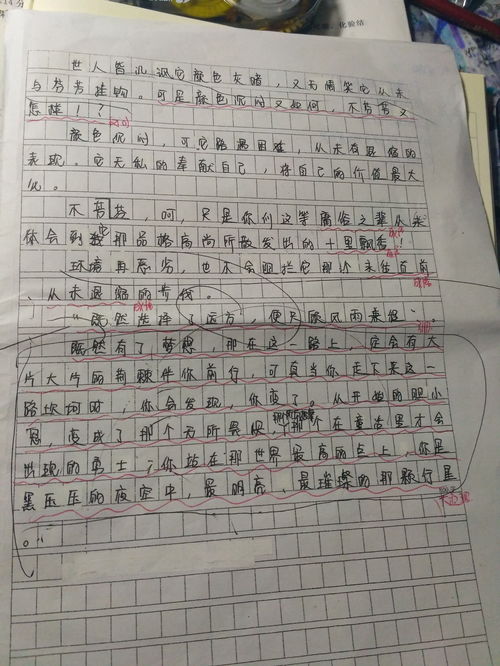 化验结
世人皆讥讽它颜色灰暗,又无情笑它从未
与芳芳挂钩。可是颜色泥的又如何,不芳芳又
怎样!?
颜色泥的,可它路遇困难,从未有退缩的
表现。它无私的奉献自己,将自己的价值最大
化。
不芳芳,呵,只是你们这等庸俗之辈从未
体会到它那品格高尚所散发出的十里飘香!
环境再恶劣,也不会阻拦它那个未往直前
、从未退缩的
“既然选择了远方,便只顾风雨来临”。
既然有了梦想,那在这一路上,定会有大
片大片的荆棘伴你前行,可真当你走下来这一
路坎坷时,你会发现,你变了。从开始的胆小
鬼,变成了那个无所畏惧,那个在童话里才会
出现的勇士;你站在那世界最高的点上,你是
黑压压的夜空中,最明亮、最璀璨的那颗行星
。